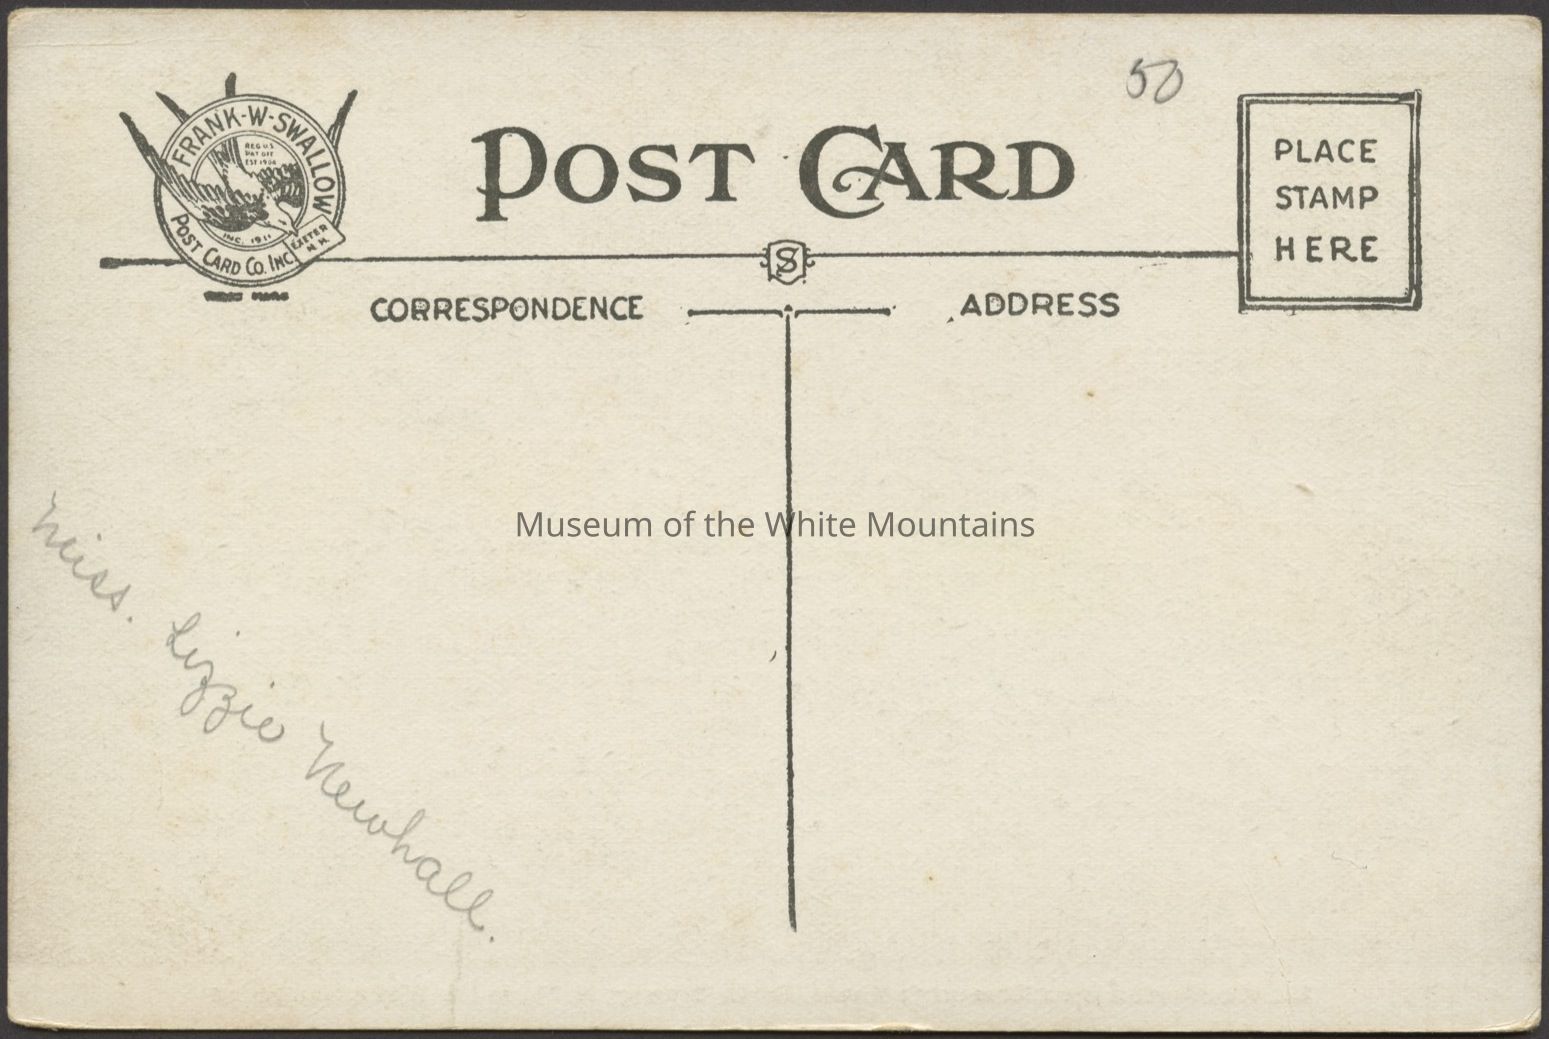 50
FRANK-W-SWALLOW
REG U.S.
PAT OFF
EST 1904
INC. 1911
EXETER
N.H.
POST CARD CO. INC
POST CARD
PLACE
STAMP
HERE
S
CORRESPONDENCE
ADDRESS
Museum of the White Mountains
Miss. Lizzie Newhall.